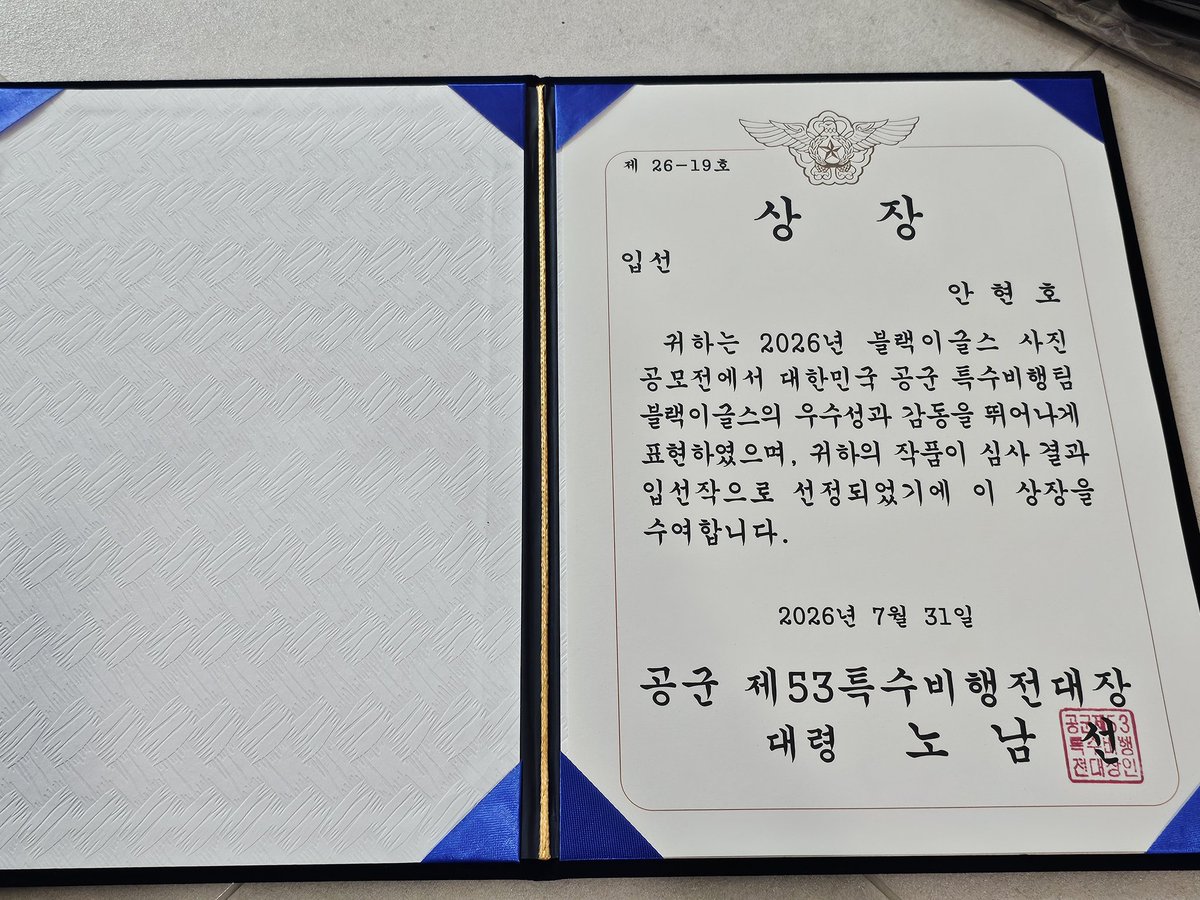 제 26-19호
상 장
입선
안 현 호
귀하는 2026년 블랙이글스 사진
공모전에서 대한민국 공군 특수비행팀
블랙이글스의 우수성과 감동을 뛰어나게
표현하였으며, 귀하의 작품이 심사 결과
입선작으로 선정되었기에 이 상장을
수여합니다.
2026년 7월 31일
공군 제53특수비행전대장
대령 노 남 선
공군제53
특수비행
전대장인